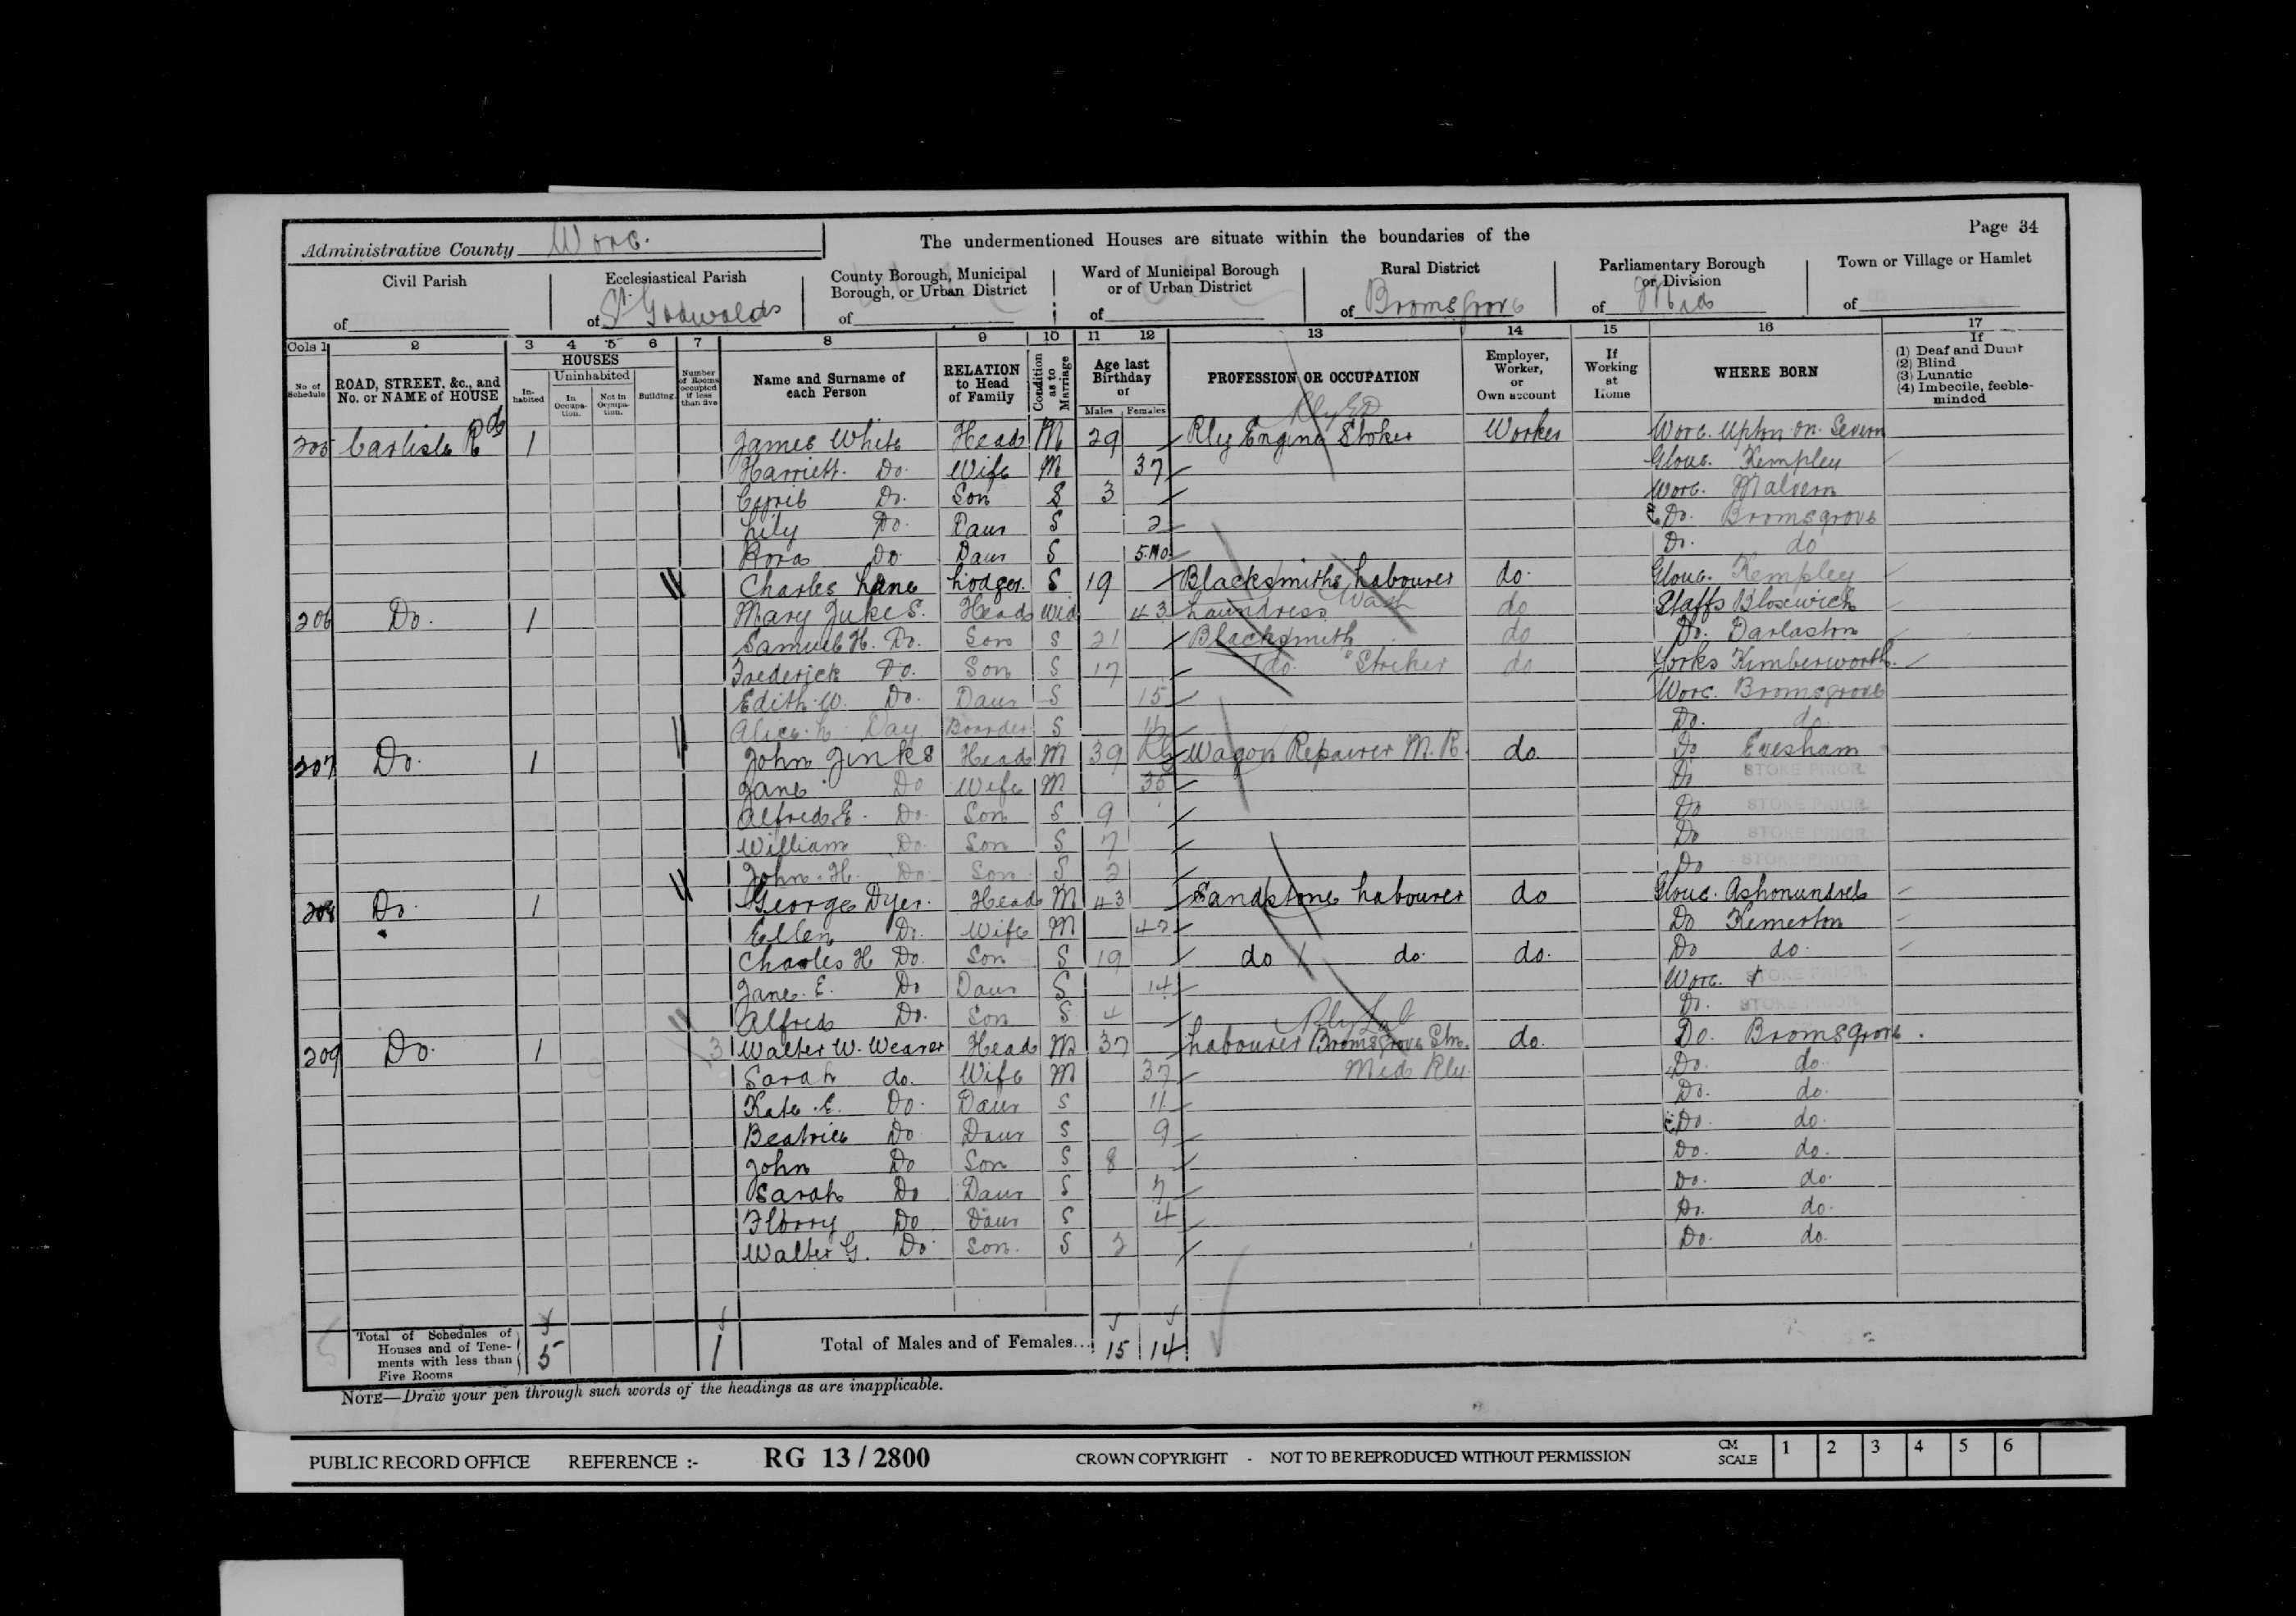 Page 34
Administrative County Worc.
The undermentioned Houses are situate within the boundaries of the
Civil Parish
of
Ecclesiastical Parish
of St. Godwalds
County Borough, Municipal Borough, or Urban District
of
Ward of Municipal Borough or of Urban District
of
Rural District
of Bromsgrove
Parliamentary Borough or Division
of Mid
Town or Village or Hamlet
of
Cols 1 2 3 4 5 6 7 8 9 10 11 12 13 14 15 16 17
No of Schedule
ROAD, STREET, &c., and No. or NAME of HOUSE
HOUSES
In-habited
Uninhabited
In Occupa-tion.
Not in Occupa-tion.
Building.
Number of Rooms occupied if less than five
Name and Surname of each Person
RELATION to Head of Family
Condition as to Marriage
Age last Birthday of
Males Females
PROFESSION OR OCCUPATION
Employer, Worker, or Own account
If Working at Home
WHERE BORN
If
(1) Deaf and Dumb
(2) Blind
(3) Lunatic
(4) Imbecile, feeble-minded
205 Carlisle Rd 1 James White Head M 29 Rly Engine Stoker Worker Worc. Upton on Severn
Harriett Do. Wife M 37 Glouc. Kempley
Cyril Do. Son S 3 Worc. Malvern
Lily Do. Daur S 2 Do. Bromsgrove
Dora Do Daur S 5 Mo. Do. do
Charles Lane Lodger. S 19 Blacksmiths Labourer do. Glouc. Kempley
206 Do. 1 Mary Jukes. Head Wid 43 Laundress Wash do Staffs Bloxwich
Samuel H. Do. Son S 21 Blacksmith do Do. Darlaston
Frederick Do. Son S 17 do. Striker do Yorks Kimberworth
Edith W. Do. Daur S 15 Worc. Bromsgrove
Alice L Day Boarder S Do. do.
207 Do. 1 John Jinks Head M 39 Wagon Repairer M. R. do. Do Evesham
Jane Do Wife M 35 Do STOKE PRIOR.
Alfred E. Do. Son S 9 Do STOKE PRIOR.
William Do. Son S 7 Do STOKE PRIOR.
John. H. Do. Son S 2 Do STOKE PRIOR.
208 Do. 1 George Dyer. Head M 43 Sandstone Labourer do Glouc.
Ellen Do. Wife M 42 Do Kemerton
Charles H Do. Son S 19 do do. do. Do do.
Jane. E. Do Daur S 14 Worc. STOKE PRIOR.
Alfred Do. Son S 4 Do. STOKE PRIOR.
209 Do. 1 3 Walter W. Weaver Head M 37 Labourer Bromsgrove Stn. do. Do. Bromsgrove.
Sarah do. Wife M 37 Mid Rly. Do. do.
Kate E. Do. Daur S 11 Do. do.
Beatrice Do Daur S 9 Do. do.
John Do Son S 8 Do. do.
Sarah Do Daur S 7 Do. do.
Florry Do Daur S 4 Do. do.
Walter G. Do. Son. S 2 Do. do.
Total of Schedules of Houses and of Tene-ments with less than Five Rooms 5 1 Total of Males and of Females... 15 14
NOTE—Draw your pen through such words of the headings as are inapplicable.
PUBLIC RECORD OFFICE REFERENCE :- RG 13 / 2800 CROWN COPYRIGHT - NOT TO BE REPRODUCED WITHOUT PERMISSION CM SCALE 1 2 3 4 5 6